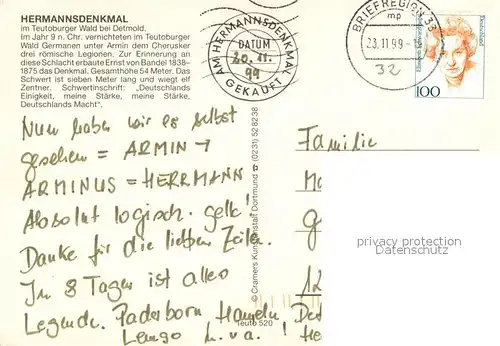 HERMANNSDENKMAL
im Teutoburger Wald bei Detmold.
Im Jahr 9 n. Chr. vernichteten im Teutoburger
Wald Germanen unter Armin dem Cherusker
drei römische Legionen. Zur Erinnerung an
diese Schlacht erbaute Ernst von Bandel 1838–
1875 das Denkmal. Gesamthöhe 54 Meter. Das
Schwert ist sieben Meter lang und wiegt elf
Zentner. Schwertinschrift: „Deutschlands
Einigkeit, meine Stärke, meine Stärke,
Deutschlands Macht“.
AM HERMANNSDENKMAL
DATUM
20. 11.
99
GEKAUFT
BRIEFREGION 33
mp
23.11.99
32
Deutschland
100
Nun haben wir es selbst
gesehen = ARMIN →
ARMINUS = HERRMANN
Absolut logisch. gell!
Danke für die lieben Zeilen.
In 8 Tagen ist alles
Legende. Paderborn Hameln
Lemgo u.v.a.!
© Cramers Kunstanstalt Dortmund ☎ (0231) 528238
Teuto 520
Familie
privacy protection
Datenschutz